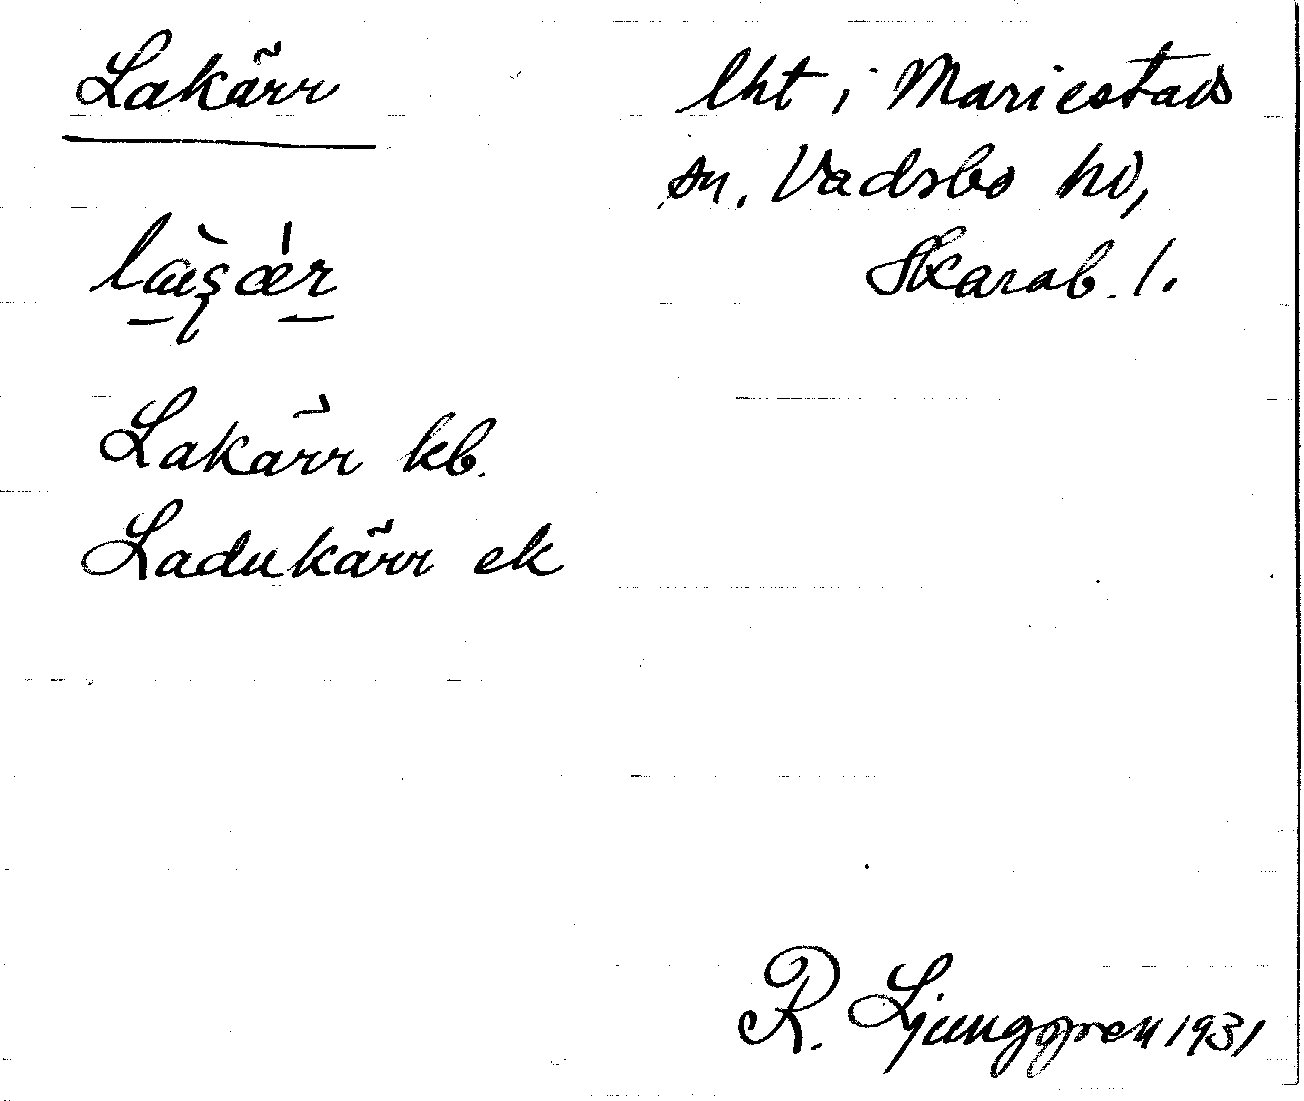 Lakärr
lht i Mariestads
sn. Vadsbo hd,
Skarab. l.
Lakärr kb.
Ladukärr ek
R. Ljunggren 1931